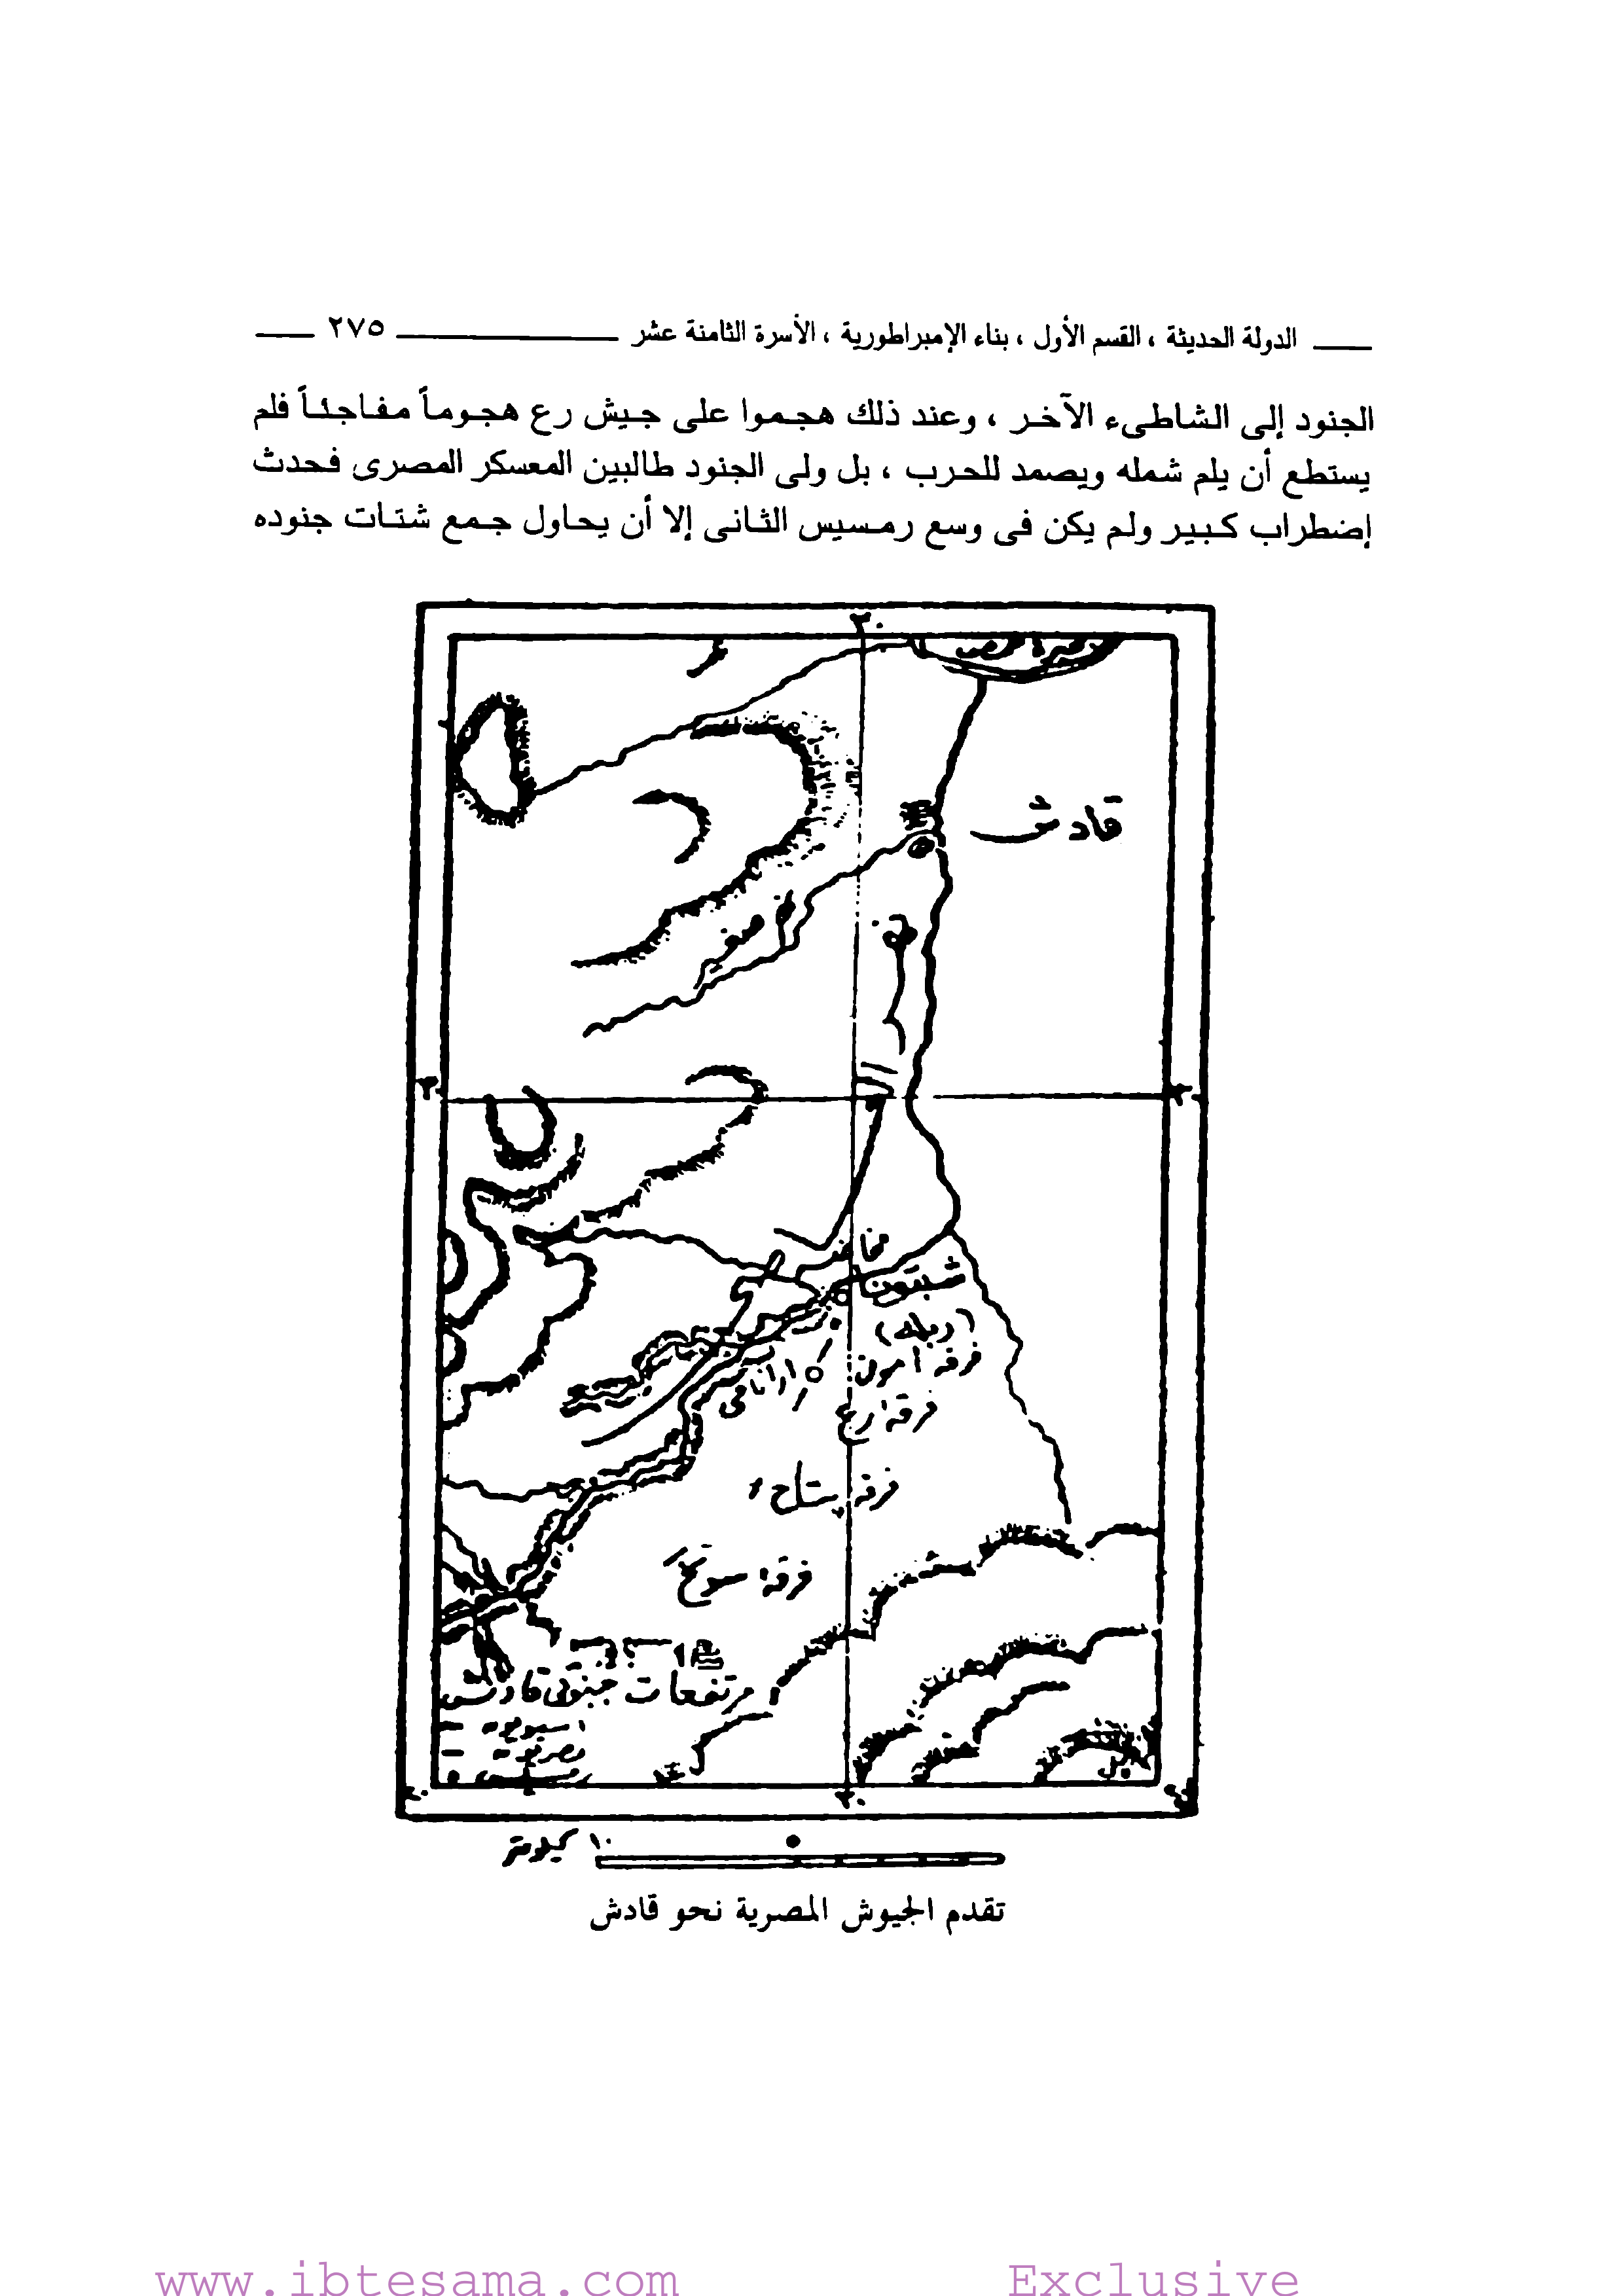 الدولة الحديثة ، القسم الأول ، بناء الإمبراطورية ، الأسرة الثامنة عشر ٢٧٥
الجنود إلى الشاطىء الآخر ، وعند ذلك هجموا على جيش رع هجوماً مفاجئاً فلم
يستطع أن يلم شمله ويصمد للحرب ، بل ولى الجنود طالبين المعسكر المصرى فحدث
إضطراب كبير ولم يكن فى وسع رمسيس الثانى إلا أن يحاول جمع شتات جنوده
قادش
شبتون
(ربله)
فرقة آمون
فرقة رع
فرقة بتاح
فرقة سوتخ
مرتفعات جنوبى قادش
١٠ كيلومتر
تقدم الجيوش المصرية نحو قادش
www.ibtesama.com Exclusive